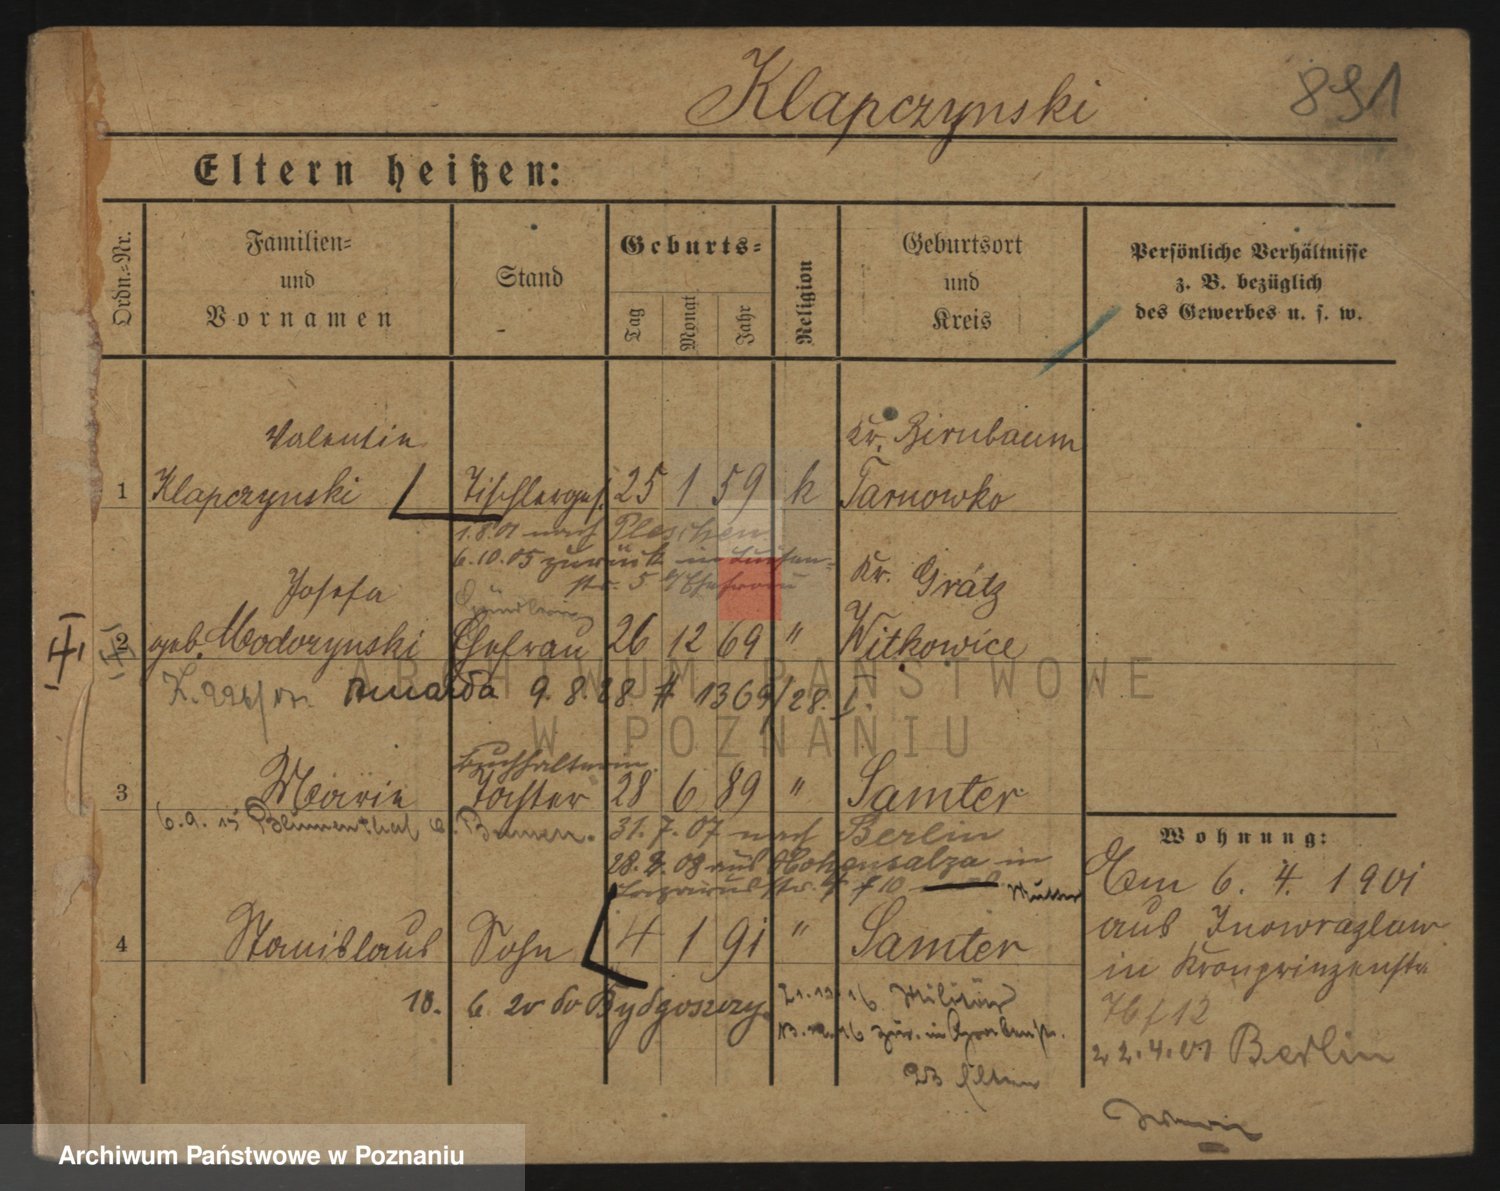 Klapczynski
891
Eltern heißen:
Ordn.-Nr.
Familien-
und
Vornamen
Stand
Geburts-
Tag
Monat
Jahr
Religion
Geburtsort
und
Kreis
Persönliche Verhältnisse
z. B. bezüglich
des Gewerbes u. s. w.
Valentin Kr. Birnbaum
1 Klapczynski Tischlerges. 25 1 59 k Tarnowko
1.8.01 nach Pleschen
6.10.05 zurück in Luisen-
str. 5 Ehefrau
Josefa Kr. Grätz
2 geb. Ehefrau 26 12 69 " Witkowice
zmarła 9.8.28 # 1369/28.
Buchhalterin
3 Marie Tochter 28 6 89 " Samter
6.9.15 Blumenthal b. Bremen.
31.7.07 nach Berlin
28.2.08 aus Hohensalza in
Mutter
4 Stanislaus Sohn 4 1 91 " Samter
10. 6. 20 do Bydgoszczy.
21.12.16 Militär
zur. in
23 Eltern
Wohnung:
Am 6. 4. 1901
aus Inowrazlaw
in Kronprinzenstr.
22.4.01 Berlin
ARCHIWUM PAŃSTWOWE
W POZNANIU
Archiwum Państwowe w Poznaniu